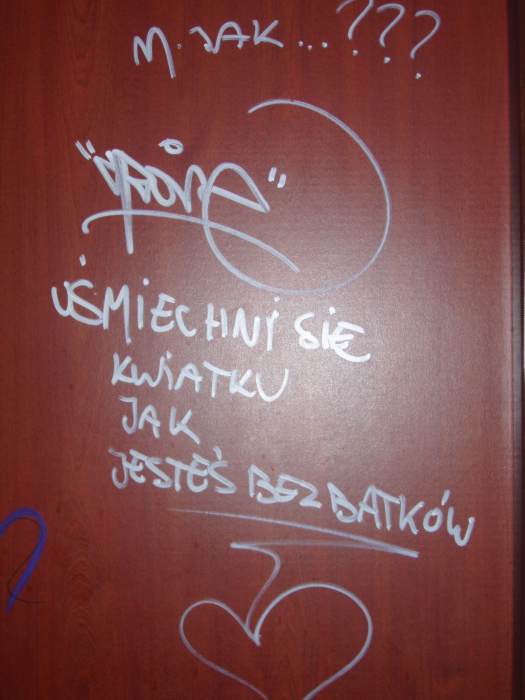 M. JAK...???
UŚMIECHNIJ SIĘ
KWIATKU
JAK
JESTEŚ BEZ BATKÓW